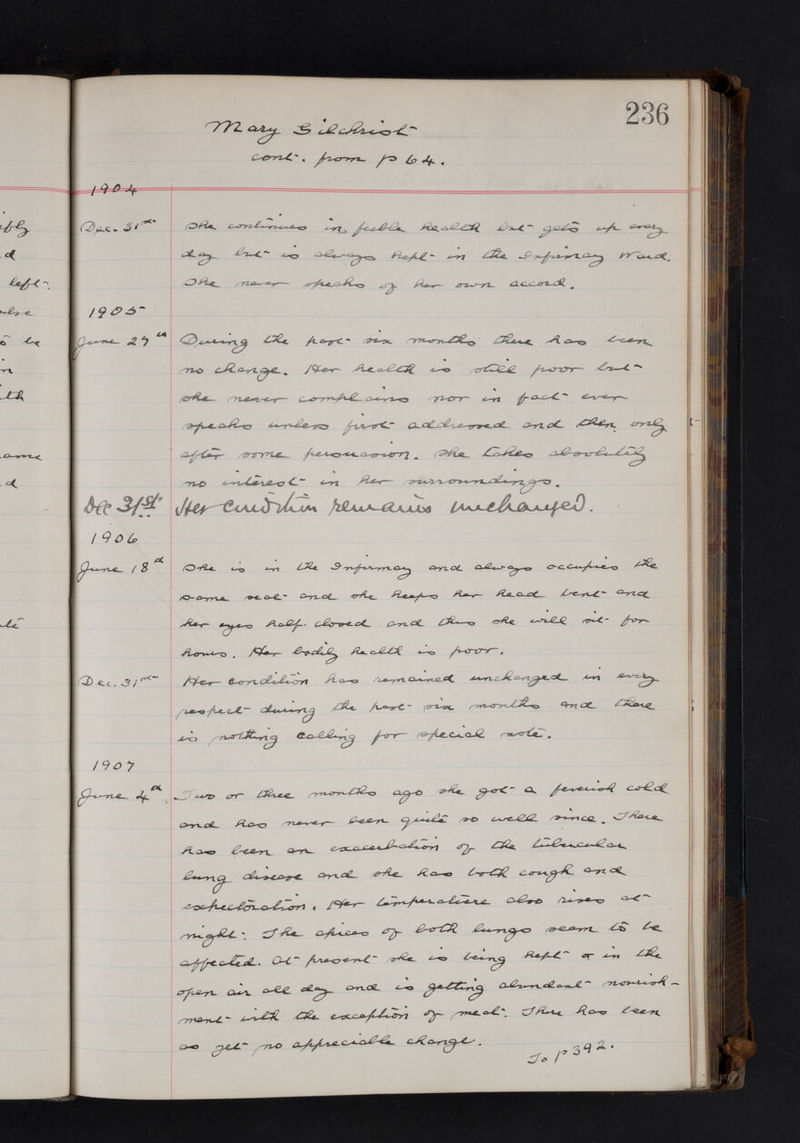 236
Mary Gilchrist
cont. from p 64.
1904
Dec. 31st She continues in feeble health but gets up every
day but is always kept in the Infirmary Ward.
She never speaks of her own accord.
1905
June 27th During the past six months there has been
no change. Her health is still poor but
she never complains nor in fact ever
speaks unless first addressed and then only
after some persuasion. She takes absolutely
no interest in her surroundings.
Dec 31st Her condition remains unchanged.
1906
June 18th She is in the Infirmary and always occupies the
same seat and she keeps her head bent and
her eyes half-closed and thus she will sit for
hours. Her bodily health is poor.
Dec. 31st Her condition has remained unchanged in every
respect during the past six months and there
is nothing calling for special note.
1907
June 4th Two or three months ago she got a feverish cold
and has never been quite so well since. There
has been an exacerbation of the tubercular
lung disease and she has both cough and
expectoration. Her temperature also rises at
night. The apices of both lungs seem to be
affected. At present she is being kept in the
open air all day and is getting abundant nourish-
ment with the exception of meat. There has been
as yet no appreciable change.
To p 392.
left.
be
d